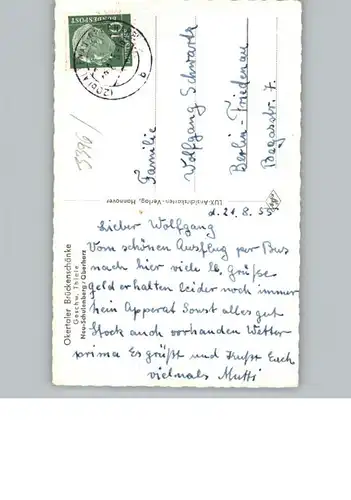 10
DEUTSCHE
BUNDESPOST
(20b)
b
3396/
Familie
Wolfgang Schwartz
Berlin-Friedenau
Begasstr. 7.
LUX-Ansichtskarten-Verlag, Hannover
Okertaler Brückenschänke
Geschw. Thiele
Neu-Schulenberg/Oberharz
d. 21.8.55
Lieber Wolfgang
Vom schönen Ausflug per Bus
nach hier viele lb. Grüße
Geld erhalten leider noch immer
kein Apperat Sonst alles gut
Stock auch vorhanden Wetter
prima Es grüßt und küßt Euch
vielmals Mutti